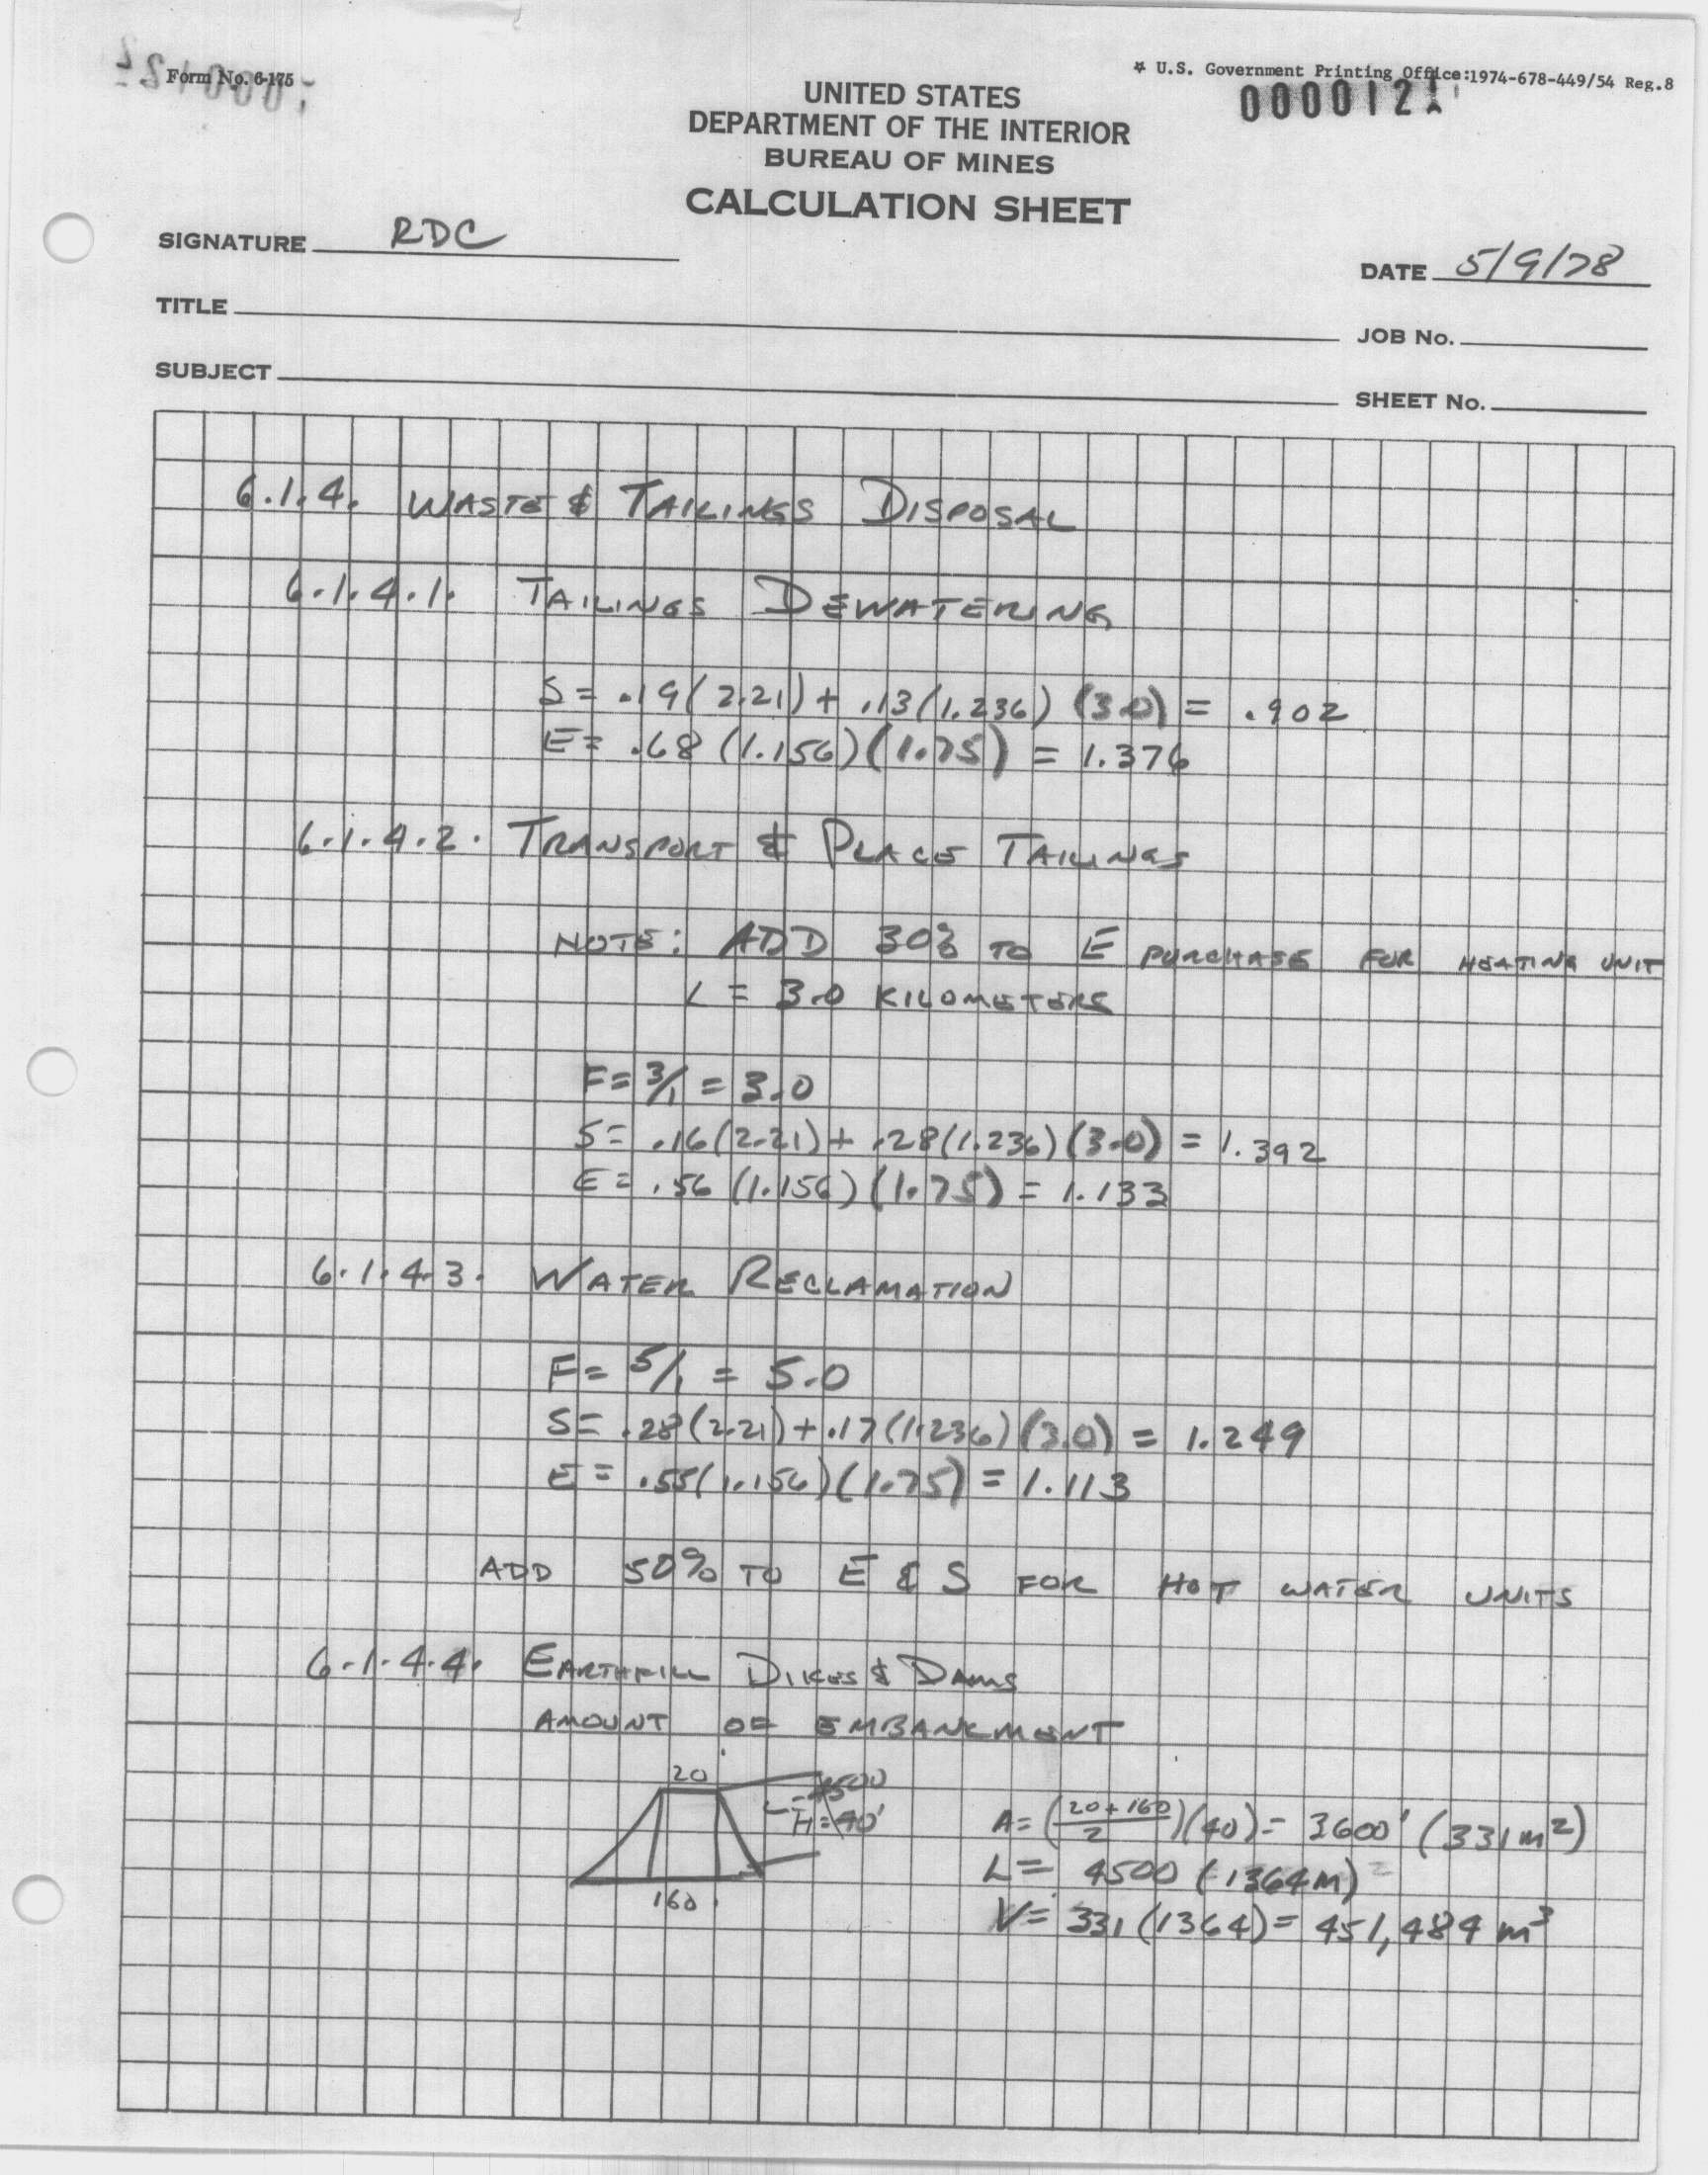 Form No. 6-175
☆ U.S. Government Printing Office:1974-678-449/54 Reg.8
UNITED STATES
DEPARTMENT OF THE INTERIOR
BUREAU OF MINES
CALCULATION SHEET
SIGNATURE RDC
DATE 5/9/78
TITLE
JOB No.
SUBJECT
SHEET No.
6.1.4. WASTE & TAILINGS DISPOSAL
6.1.4.1. TAILINGS DEWATERING
S = .19(2.21) + .13(1.236)(3.0) = .902
E = .68(1.156)(1.75) = 1.376
6.1.4.2. TRANSPORT & PLACE TAILINGS
NOTE: ADD 30% TO E PURCHASE FOR HEATING UNIT
L = 3.0 KILOMETERS
F = 3/1 = 3.0
S = .16(2.21) + .28(1.236)(3.0) = 1.392
E = .56(1.156)(1.75) = 1.133
6.1.4.3. WATER RECLAMATION
F = 5/1 = 5.0
S = .28(2.21) + .17(1.236)(3.0) = 1.249
E = .55(1.156)(1.75) = 1.113
ADD 50% TO E & S FOR HOT WATER UNITS
6.1.4.4. EARTHFILL DIKES & DAMS
AMOUNT OF EMBANKMENT
20
L = 4500
H = 40'
160
A = (20+160/2)(40) = 3600' (331 m²)
L = 4500 (1364M)
V = 331(1364) = 451,484 m³